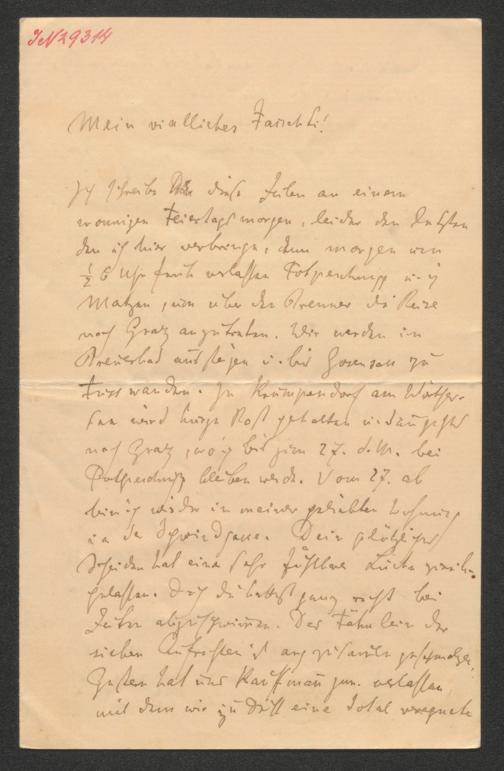 JN 29314
Mein viellieber Faischti!
Ich schreibe Dir diese Zeilen an einem
wonnigen Feiertagsmorgen, leider den letzten
den ich hier verbringe, denn morgen um
½ 6 Uhr früh verlassen Potpeschnigg u. ich
Matzen, um über den Brenner die Reise
nach Graz anzutreten. Wir werden im
Brennerbad aussteigen u. bis Gossensass zu
Fuss wandern. In Krumpendorf am Wörther-
see wird kurze Rast gehalten u. dann geht's
nach Graz, wo ich bis zum 27. d. M. bei
Potpeschnigg bleiben werde. Vom 27. ab
bin ich wieder in meiner geliebten Wohnung
in der Schwindgasse. Dein plötzliches
Scheiden hat eine sehr fühlbare Lücke zurück-
gelassen. Doch Du hattest ganz recht bei
Zeiten abzuschwimmen. Das Fähnlein der
sieben Aufrechten ist arg zusammengeschmolzen.
Gestern hat uns Kauffmann jun. verlassen,
mit dem wir zu eine total verregnete